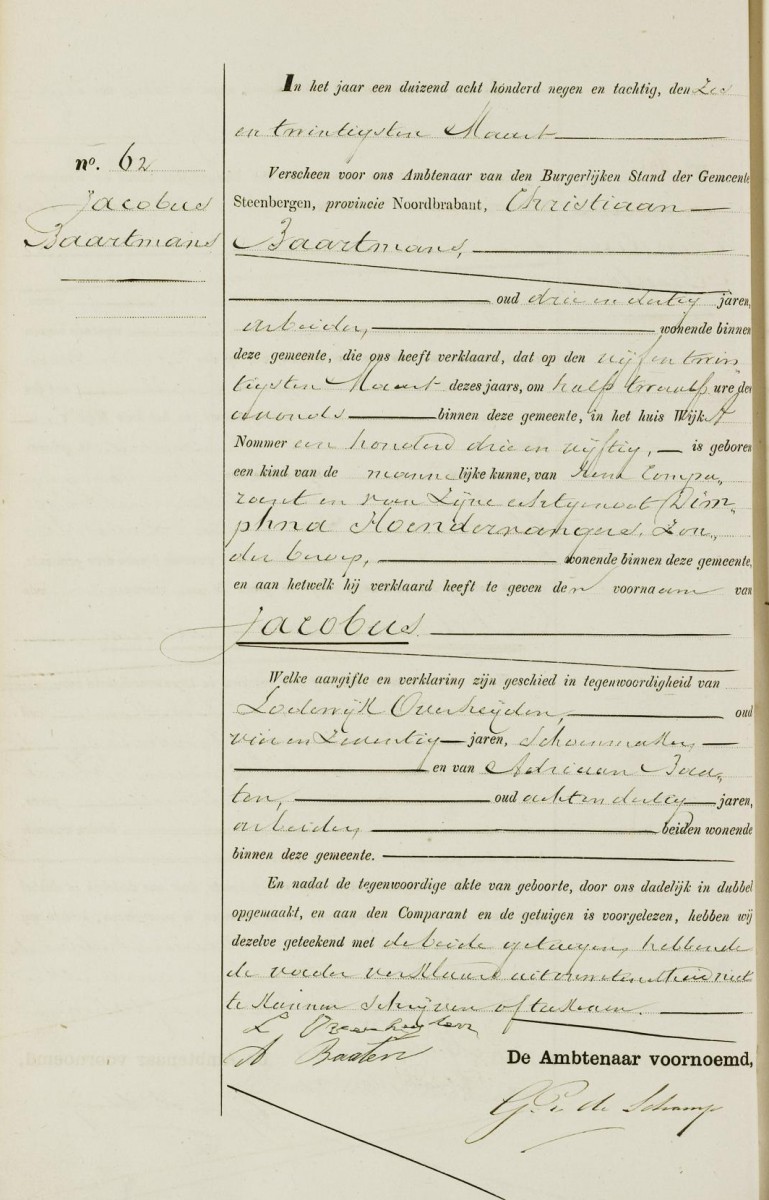 In het jaar een duizend acht honderd negen en tachtig, den Zes
en twintigsten Maart
no. 62
Jacobus
Baartmans
Verscheen voor ons Ambtenaar van den Burgerlijken Stand der Gemeente
Steenbergen, provincie Noordbrabant, Christiaan
Baartmans,
oud drie en dertig jaren,
arbeider, wonende binnen
deze gemeente, die ons heeft verklaard, dat op den vijf en twin
tigsten Maart dezes jaars, om half twaalf ure des
avonds binnen deze gemeente, in het huis Wijk A
Nommer een honderd drie en vijftig, is geboren
een kind van de mannelijke kunne, van hem Compa„
rant en van Zijne echtgenoot Dim„
phna Hoendervangers, Zon„
der beroep, wonende binnen deze gemeente,
en aan hetwelk hij verklaard heeft te geven den voornaam van
Jacobus.
Welke aangifte en verklaring zijn geschied in tegenwoordigheid van
Lodewijk Overheijden, oud
vier en Zeventig jaren, Schoenmaker,
en van Adriaan Baa„
ten, oud acht en dertig jaren,
arbeider, beiden wonende
binnen deze gemeente.
En nadat de tegenwoordige akte van geboorte, door ons dadelijk in dubbel
opgemaakt, en aan den Comparant en de getuigen is voorgelezen, hebben wij
dezelve geteekend met de beide getuigen, hebbende
de vader verklaard uit onwetendheid niet
te kunnen schrijven of teekenen.
L Overheijden
A Baaten
De Ambtenaar voornoemd,
de Schamp